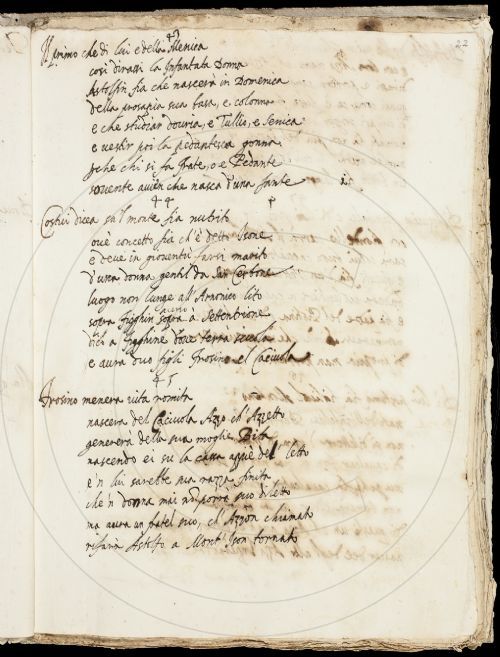 22
43
Il primo che di lui e della Menica
così dirassi la Infantata Donna
Astolfin fia che nascerà in Domenica
della prosapia sua basa, e colonna
e che studiar douria, e Tullio, e Senica
e uestir poi la pedantesca gonna
che chi si fa frate, o è Pedante
souente auuien che nasca d'una fante
44
Costui dicea sul monte fia nutrito
oue concetto fia ch'è detto Isone
e deue in giouentù farsi marito
d'una donna gentil da San Cerbone
luogo non lunge all'Arnonico lito
sopra Fegghin à Setentrione
e aura duo figli Frosino el Caciuola
45
Frosino menerà uita romita
nascerà del Caciuola Azzo ch'Azzetto
genererà della sua moglie Bita
nascendo ei su la cassa appiè del letto
e'n lui sarebbe sua razza finita
che'n donna mai non porrà suo diletto
ma aura un fratel suo, ch'Azzon chiamato
rifarà Astolfo a Mont'Ison tornato